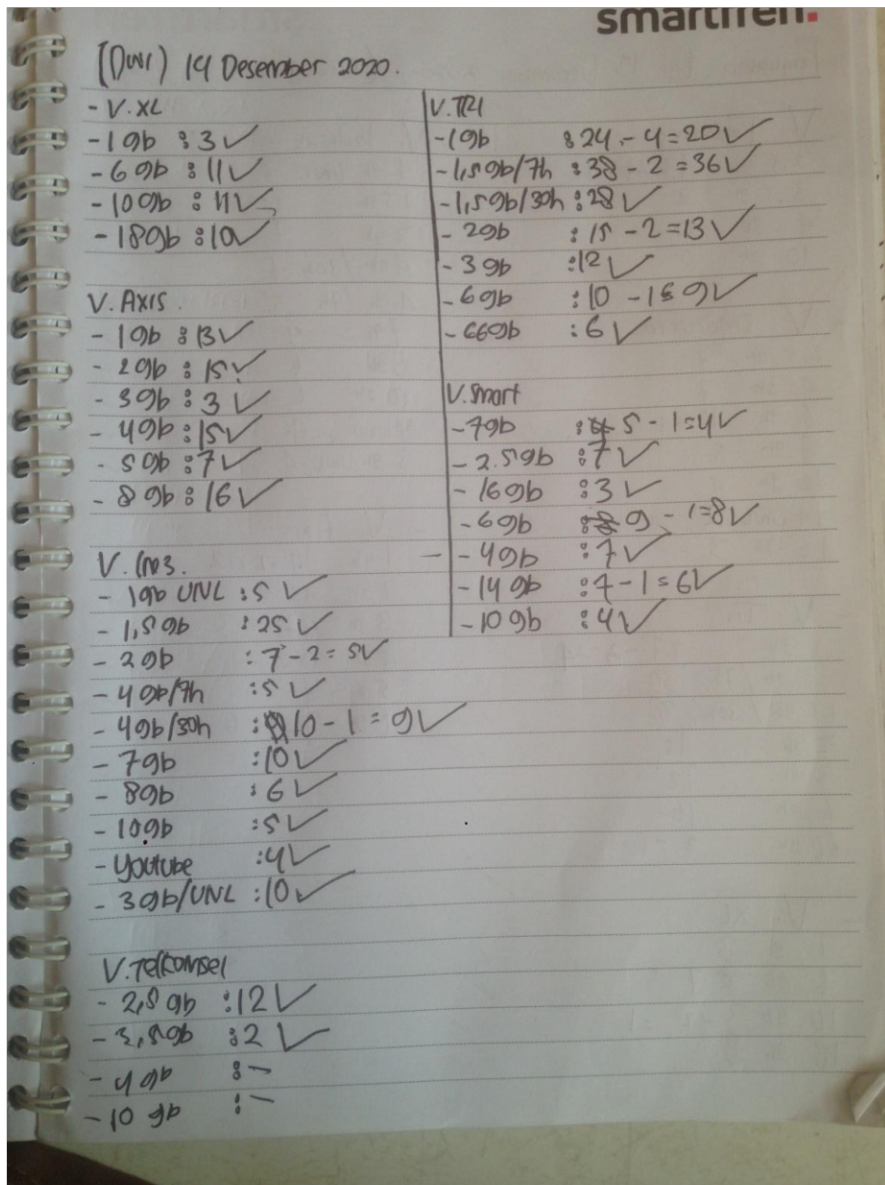 smartfren.
(Dwi) 14 Desember 2020.
- V. XL
- 1 gb : 3 ✓
- 6 gb : 11 ✓
- 10 gb : 11 ✓
- 18 gb : 10 ✓
V. AXIS.
- 1 gb : 13 ✓
- 2 gb : 15 ✓
- 3 gb : 3 ✓
- 4 gb : 15 ✓
- 5 gb : 7 ✓
- 8 gb : 16 ✓
V. Im3.
- 1 gb UNL : 5 ✓
- 1,5 gb : 25 ✓
- 2 gb : 7 - 2 = 5 ✓
- 4 gb/7h : 5 ✓
- 4 gb/30h : 10 - 1 = 9 ✓
- 7 gb : 10 ✓
- 8 gb : 6 ✓
- 10 gb : 5 ✓
- Youtube : 4 ✓
- 3 gb/UNL : 10 ✓
V. Telkomsel
- 2,5 gb : 12 ✓
- 3,5 gb : 2 ✓
- 4 gb : -
- 10 gb : -
V. TRI
- 1 gb : 24 - 4 = 20 ✓
- 1,5 gb/7h : 38 - 2 = 36 ✓
- 1,5 gb/30h : 28 ✓
- 2 gb : 15 - 2 = 13 ✓
- 3 gb : 12 ✓
- 6 gb : 10 - 1 = 9 ✓
- 66 gb : 6 ✓
V. Smart
- 7 gb : 5 - 1 = 4 ✓
- 2.5 gb : 7 ✓
- 16 gb : 3 ✓
- 6 gb : 9 - 1 = 8 ✓
- 4 gb : 7 ✓
- 14 gb : 7 - 1 = 6 ✓
- 10 gb : 4 ✓